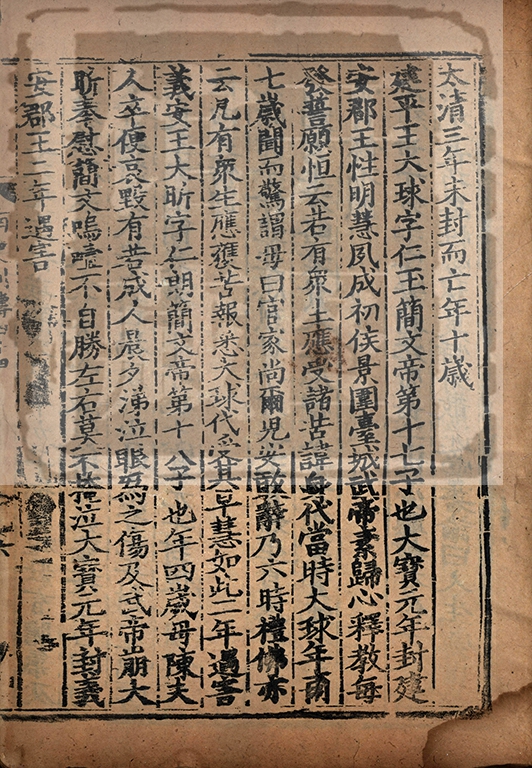 太清三年未封而亡年十歲
建平王大球字仁王簡文帝第十七子也大寶元年封建
安郡王性明慧夙成初侯景圍臺城武帝素歸心釋教每
發誓願恒云若有衆生應受諸苦諱身代當時大球年甫
七歲聞而驚謂母曰官家尚爾兒安敢辭乃六時禮佛亦
云凡有衆生應獲苦報悉大球代受其早慧如此二年遇害
義安王大昕字仁朗簡文帝第十八子也年四歲母陳夫
人卒便哀毀有若成人晨夕涕泣眼爲之傷及武帝崩大
昕奉慰簡文嗚噎不自勝左右莫不掩泣大寶元年封義
安郡王二年遇害